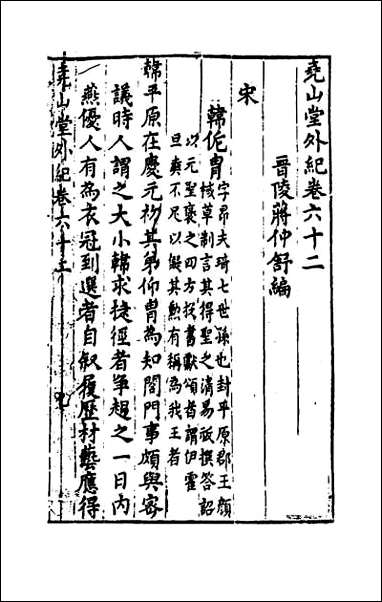 堯山堂外紀卷六十二
晉陵蔣仲舒編
宋
韓侂冑
字昂夫琦七世孫也封平原郡王顏
棫草制言其得聖之清易祓撰答詔
以元聖褒之四方投書獻頌者謂伊霍
旦奭不足以擬其勲有稱為我王者
韓平原在慶元初其弟仰冑為知閤門事頗與密
議時人謂之大小韓求捷徑者爭趨之一日內
燕優人有為衣冠到選者自叙履歷材藝應得
堯山堂外紀卷六十二